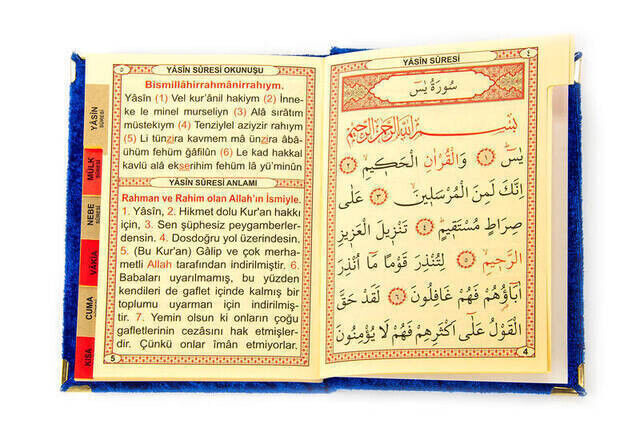 YÂSİN SÛRESİ OKUNUŞU
٥
Bismillâhirrahmânirrahıym.
Yâsîn (1) Vel kur'ânil hakiym (2) İnne-
ke le minel murseliyn (3) Alâ sırâtım
müstekıym (4) Tenziylel aziyzir rahıym
(5) Li tünzira kavmem mâ ünzira âbâ-
ühüm fehüm ğâfilûn (6) Le kad hakkal
kavlü alâ ekserihim fehüm lâ yü'minûn
YÂSÎN SÛRESİ ANLAMI
Rahman ve Rahim olan Allah'ın İsmiyle.
1. Yâsîn, 2. Hikmet dolu Kur'an hakkı
için, 3. Sen şüphesiz peygamberler-
densin. 4. Dosdoğru yol üzerindesin.
5. (Bu Kur'an) Gâlip ve çok merha-
metli Allah tarafından indirilmiştir. 6.
Babaları uyarılmamış, bu yüzden
kendileri de gaflet içinde kalmış bir
toplumu uyarman için indirilmiş-
tir. 7. Yemin olsun ki onların çoğu
gafletlerinin cezasını hak etmişler-
dir. Çünkü onlar îmân etmiyorlar.
5
YÂSİN SÛRESİ
MÜLK SÛRESİ
NEBE SÛRESİ
VÂKIA
CUMA
KISA
YÂSİN SÛRESİ
٤
سُورَةُ يٰسٓ
بِسْمِ اللّٰهِ الرَّحْمٰنِ الرَّحِيمِ
يٰسٓ ﴿١﴾ وَالْقُرْاٰنِ الْحَكِيمِ ﴿٢﴾
اِنَّكَ لَمِنَ الْمُرْسَلِينَ ﴿٣﴾ عَلٰى
صِرَاطٍ مُسْتَقِيمٍ ﴿٤﴾ تَنْزِيلَ الْعَزِيزِ
الرَّحِيمِ ﴿٥﴾ لِتُنْذِرَ قَوْمًا مَٓا اُنْذِرَ
اٰبَٓاؤُهُمْ فَهُمْ غَافِلُونَ ﴿٦﴾ لَقَدْ حَقَّ
الْقَوْلُ عَلٰٓى اَكْثَرِهِمْ فَهُمْ لَا يُؤْمِنُونَ
4